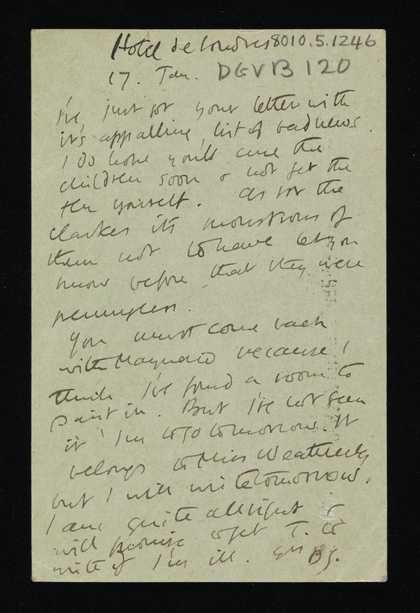 Hotel de Londres 8010.5.1246
17. Jan. DGVB 120
I've just got your letter with
it's appalling list of bad news.
I do hope you'll cure the
children soon & not get the
flu yourself. As for the
clarkes its monstrous of
them not to have let you
know before that they were
penniless.
You must come back
with Maynard because I
think I've found a room to
paint in. But I've not seen
it I'm to go tomorrow. It
belongs to Miss Weatherly
but I will write tomorrow.
I am quite alright &
will promise to get T. to
write if I'm ill.